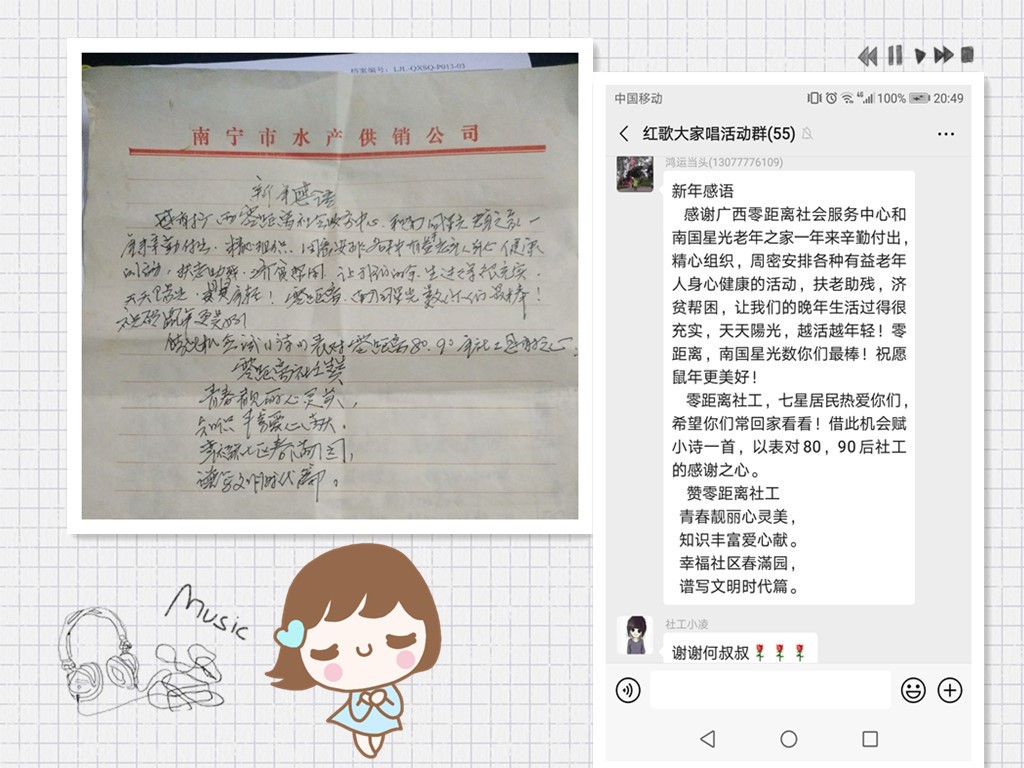 档案编号：LJL-QXSQ-P013-03
南宁市水产供销公司
新年感语
感谢广西零距离社会服务中心和南国星光老年之家一
年来辛勤付出，精心组织，周密安排各种有益老年人身心健康
的活动，扶老助残，济贫帮困，让我们的晚年生活过得很充实，
天天阳光，越活年轻！零距离，南国星光数你们最棒！
祝愿鼠年更美好！
借此机会赋小诗一首表对零距离80.90后社工感谢之心。
零距离社工赞
青春靓丽心灵美，
知识丰富爱心献，
幸福社区春满园，
谱写文明时代篇。
Music
中国移动 4G 100% 20:49
红歌大家唱活动群(55)
鸿运当头(13077776109)
新年感语
感谢广西零距离社会服务中心和
南国星光老年之家一年来辛勤付出，
精心组织，周密安排各种有益老年
人身心健康的活动，扶老助残，济
贫帮困，让我们的晚年生活过得很
充实，天天陽光，越活越年轻！零
距离，南国星光数你们最棒！祝愿
鼠年更美好！
零距离社工，七星居民热爱你们，
希望你们常回家看看！借此机会赋
小诗一首，以表对80，90后社工
的感谢之心。
赞零距离社工
青春靓丽心灵美，
知识丰富爱心献。
幸福社区春滿园，
谱写文明时代篇。
社工小凌
谢谢何叔叔🌹🌹🌹